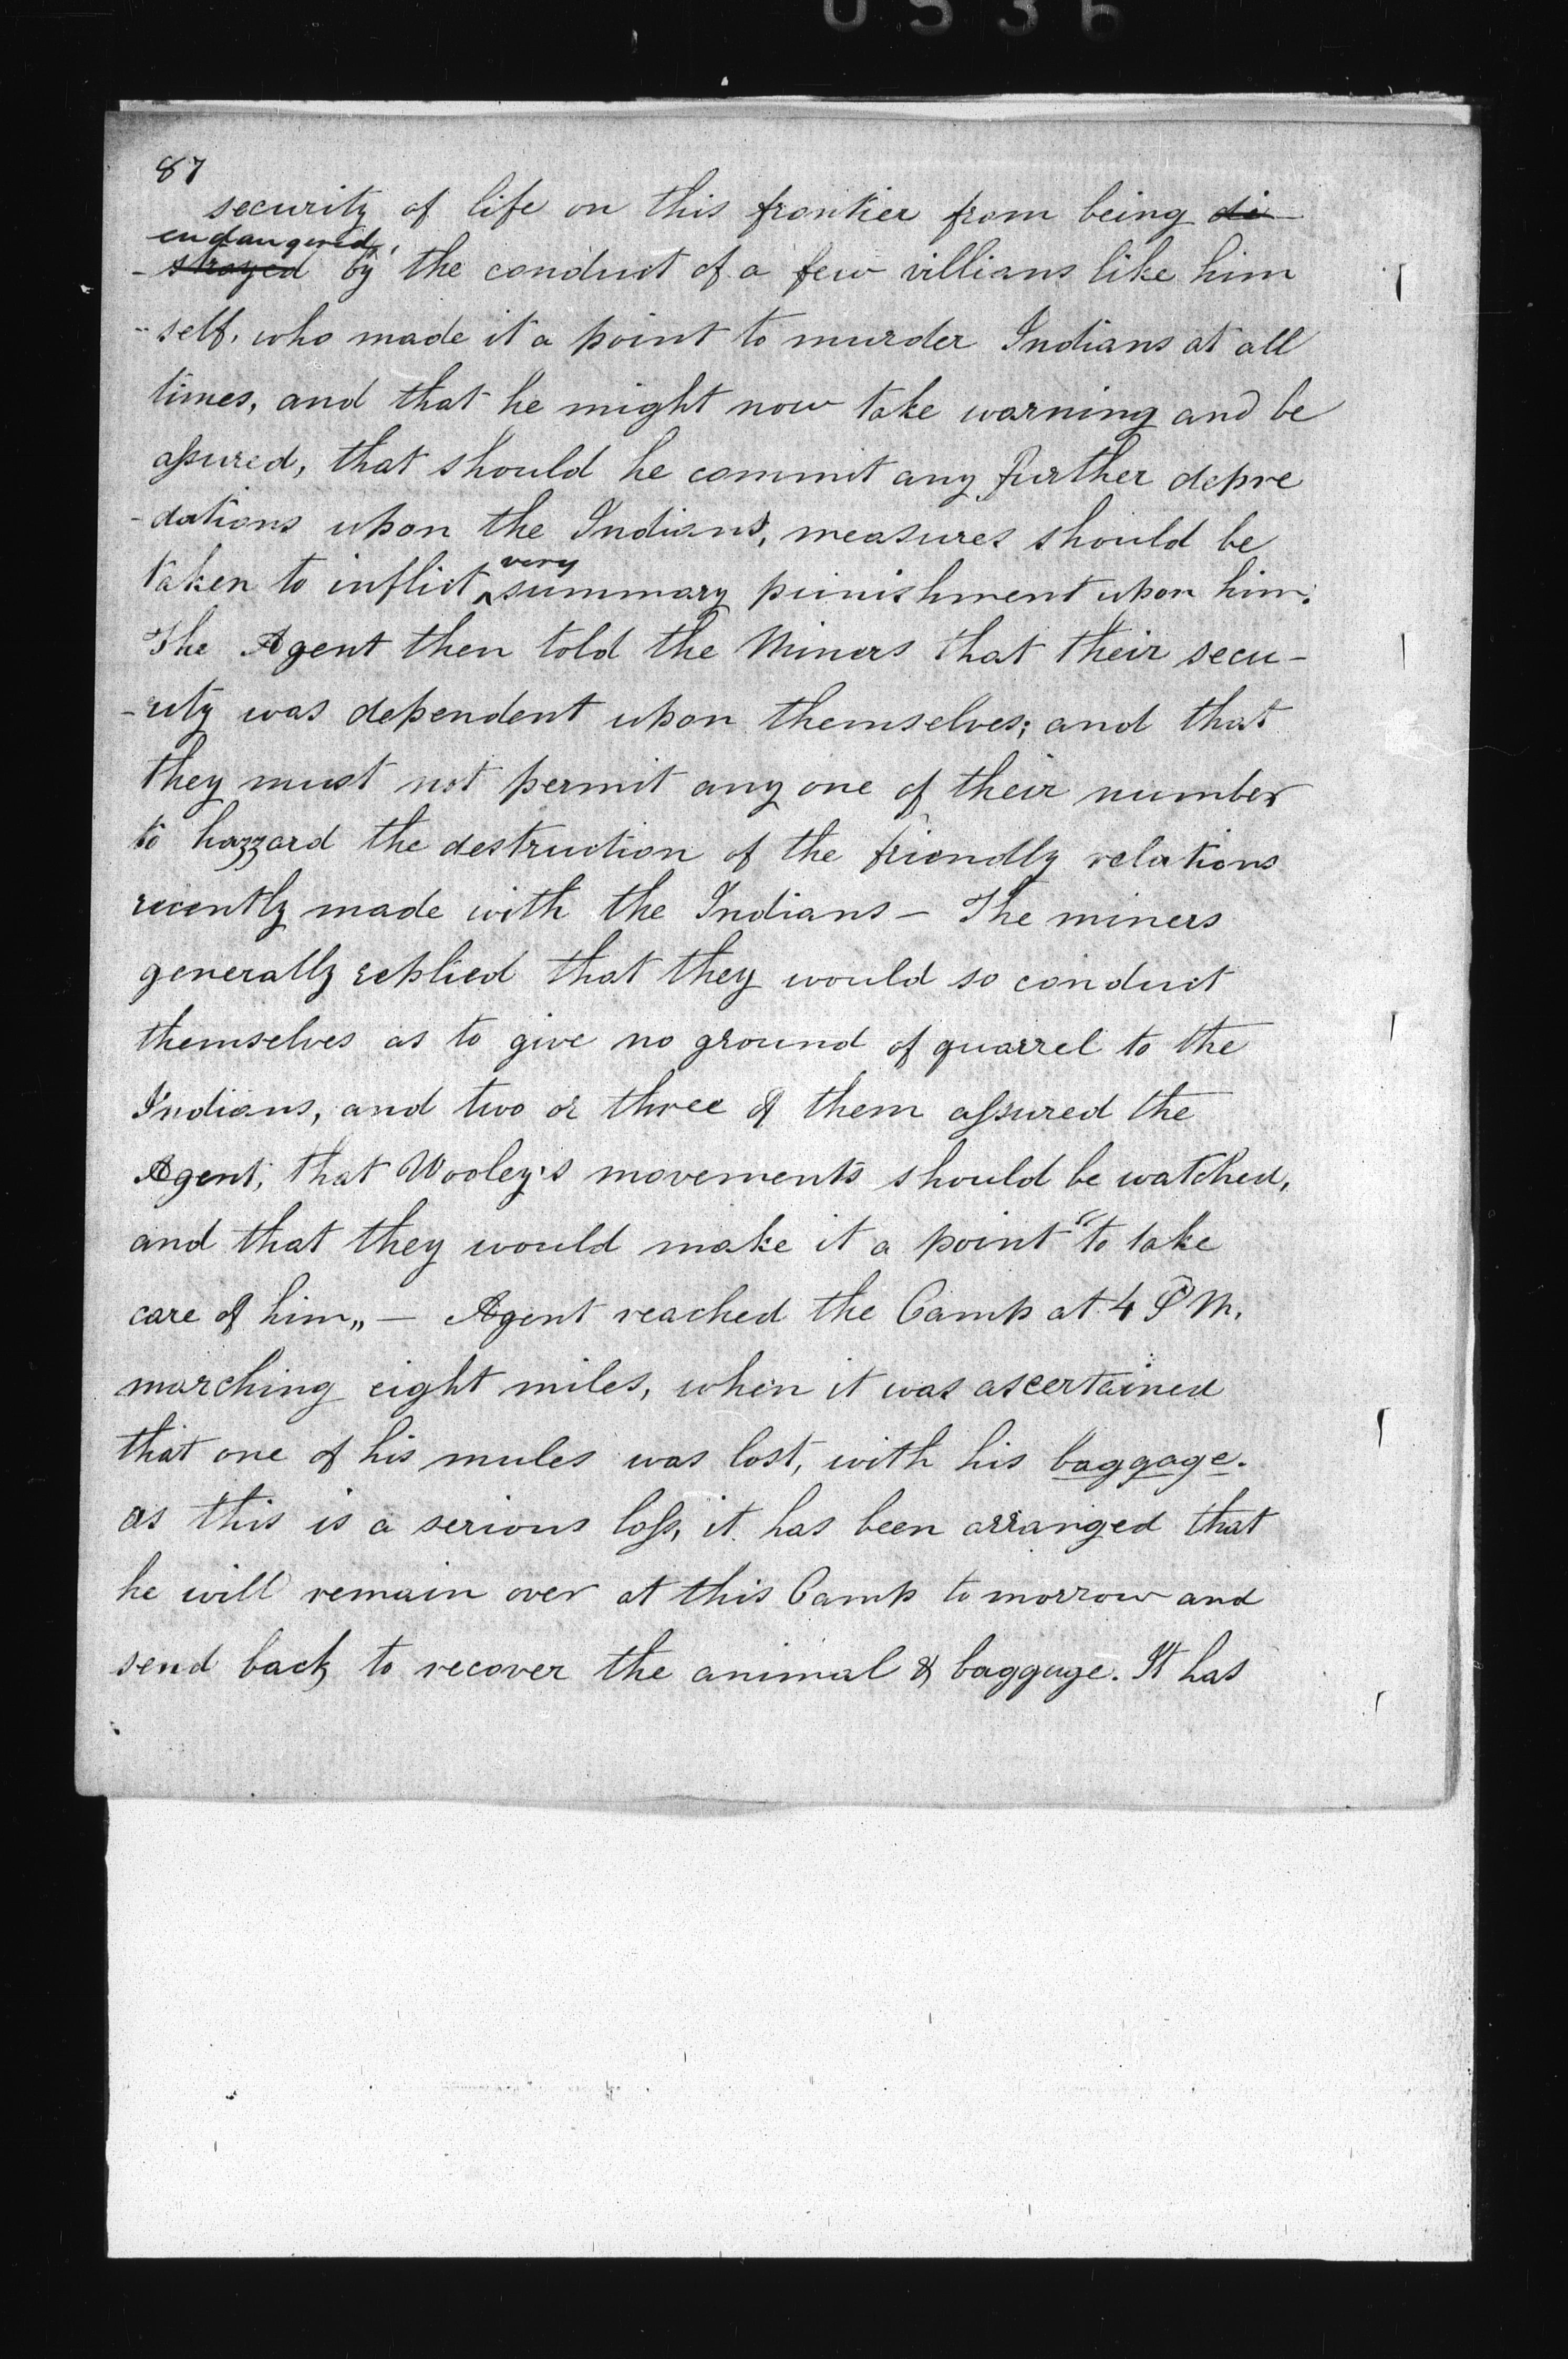 0536
87
security of life on this frontier from being di-
endangered,
-strayed by the conduct of a few villians like him
-self, who made it a point to murder Indians at all
times, and that he might now take warning and be
assured, that should he commit any further depre
-dations upon the Indians, measures should be
very
taken to inflict ^ summary punishment upon him.
The Agent then told the Miners that their secu-
-rity was dependent upon themselves; and that
they must not permit any one of their number
to hazzard the destruction of the friendly relations
recently made with the Indians - The miners
generally replied that they would so conduct
themselves as to give no ground of quarrel to the
Indians, and two or three of them assured the
Agent, that Wooley's movements should be watched,
and that they would make it a point "to take
care of him„ - Agent reached the Camp at 4 P M.
marching eight miles, when it was ascertained
that one of his mules was lost, with his baggage.
as this is a serious loss, it has been arranged that
he will remain over at this Camp to morrow and
send back to recover the animal & baggage. It has